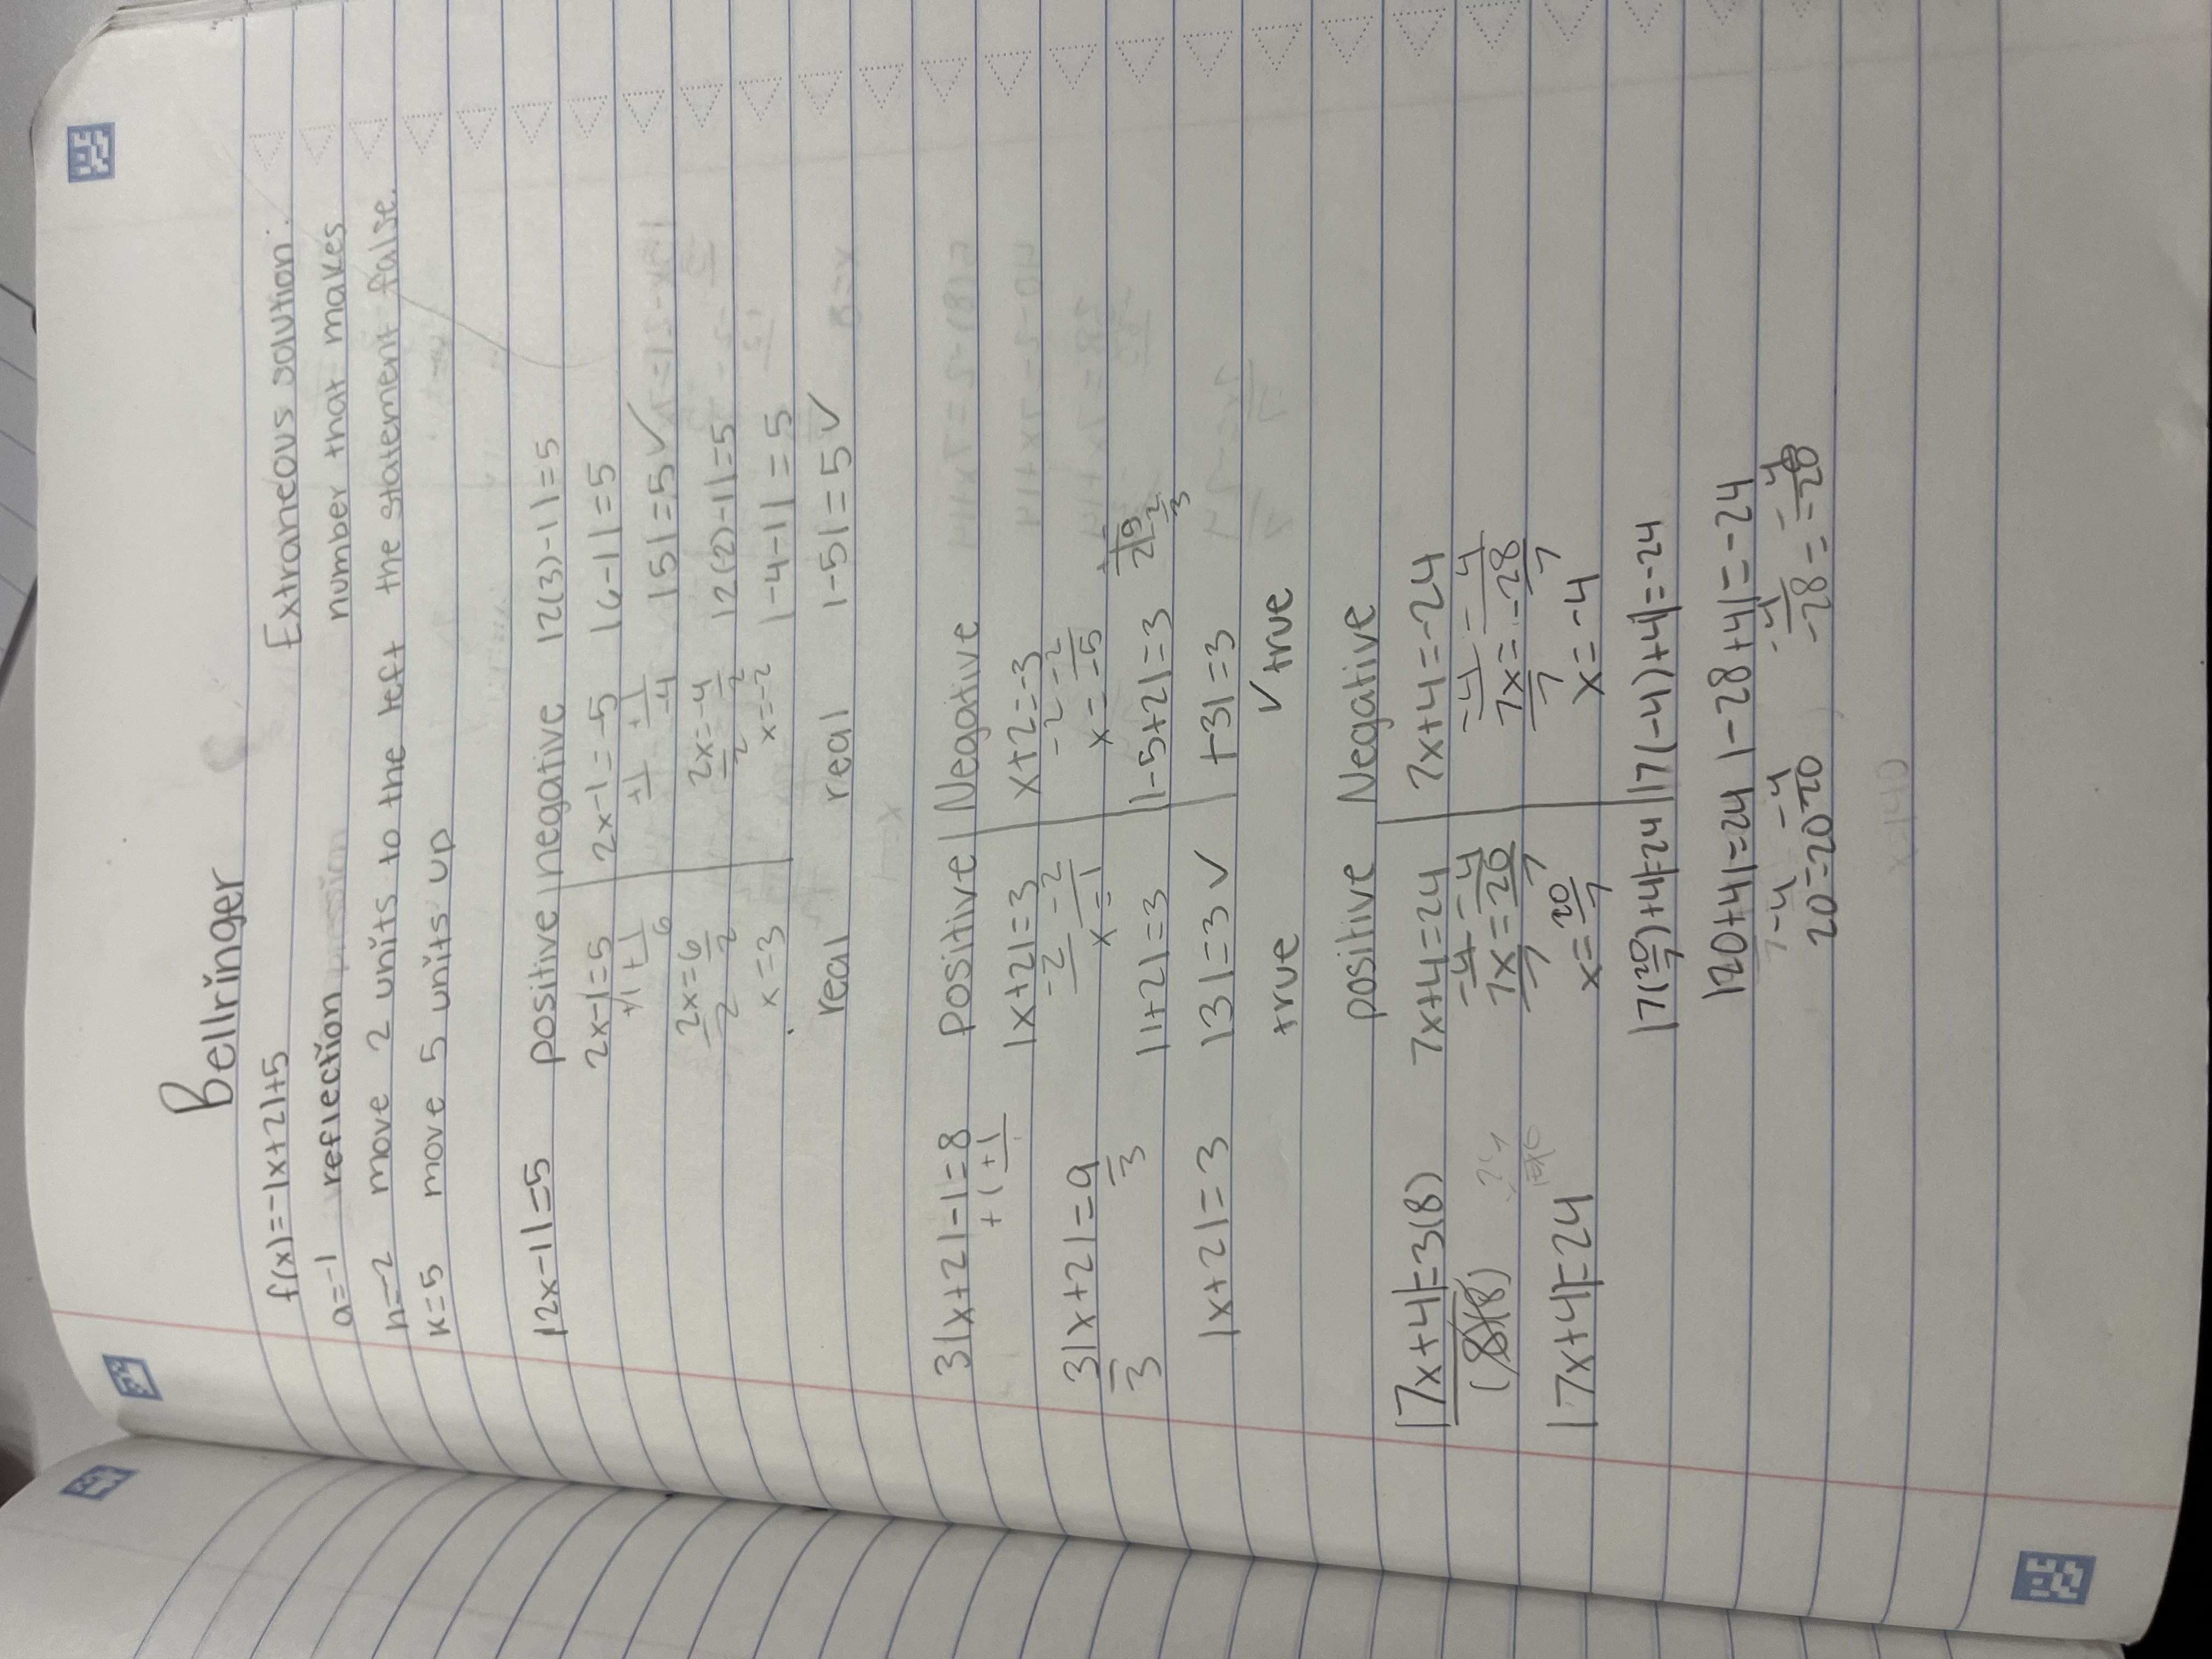 Bellringer
f(x)=-|x+2|+5
Extraneous solution:
a=-1 reflection
number that makes
h=-2 move 2 units to the left
the statement false.
k=5 move 5 units up
|2x-1|=5
positive | negative
2x-1=5
+1 +1
6
2x=6
2 2
x=3
real
2x-1=-5
+1 +1
-4
2x=-4
2 2
x=-2
real
|2(3)-1|=5
|6-1|=5
|5|=5✓
|2(-2)-1|=5
|-4-1|=5
|-5|=5✓
3|x+2|-1=8
+1 +1
3|x+2|=9
3 3
|x+2|=3
Positive | Negative
|x+2|=3
-2 -2
x=1
|1+2|=3
|3|=3✓
true
x+2=-3
-2 -2
x=-5
|-5+2|=3
|-3|=3
✓ true
|7x+4|=3(8)
(8)(8)
|7x+4|=24
positive
Negative
7x+4=24
-4 -4
7x=20
7 7
x=20/7
|7(20/7)+4|=24
|20+4|=24
-4 -4
20=20
7x+4=-24
-4 -4
7x=-28
7 7
x=-4
|7(-4)+4|=-24
|-28+4|=-24
-4 -4
-28=-28